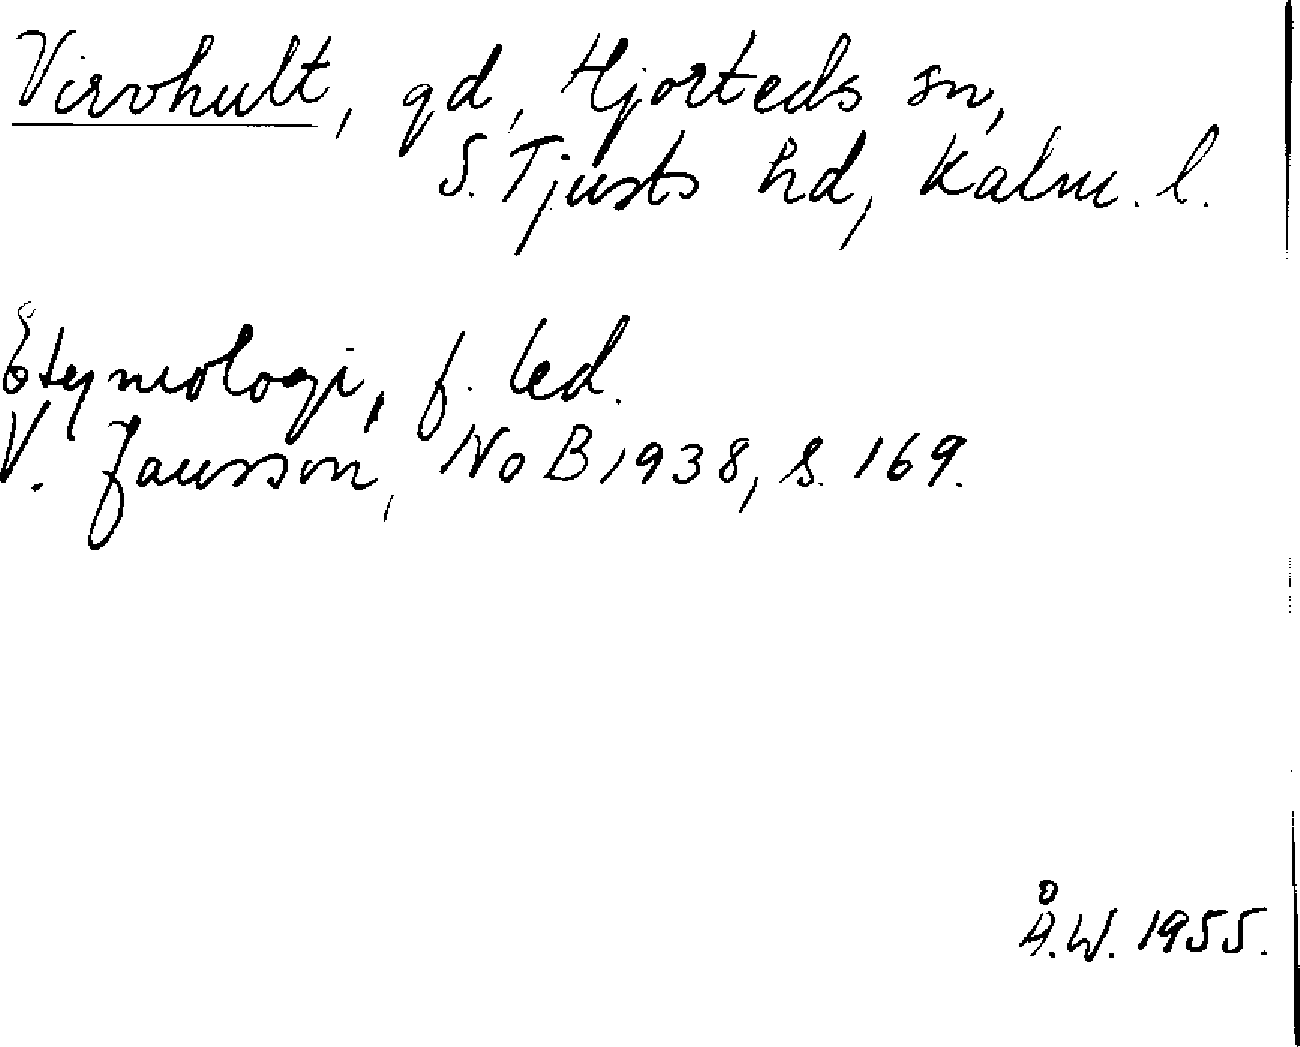 Virvhult, gd, Hjorteds sn,
S. Tjusts hd, Kalm. l.
Etymologi, f. led.
V. Jansson, NoB 1938, s. 169.
Å.W. 1955.